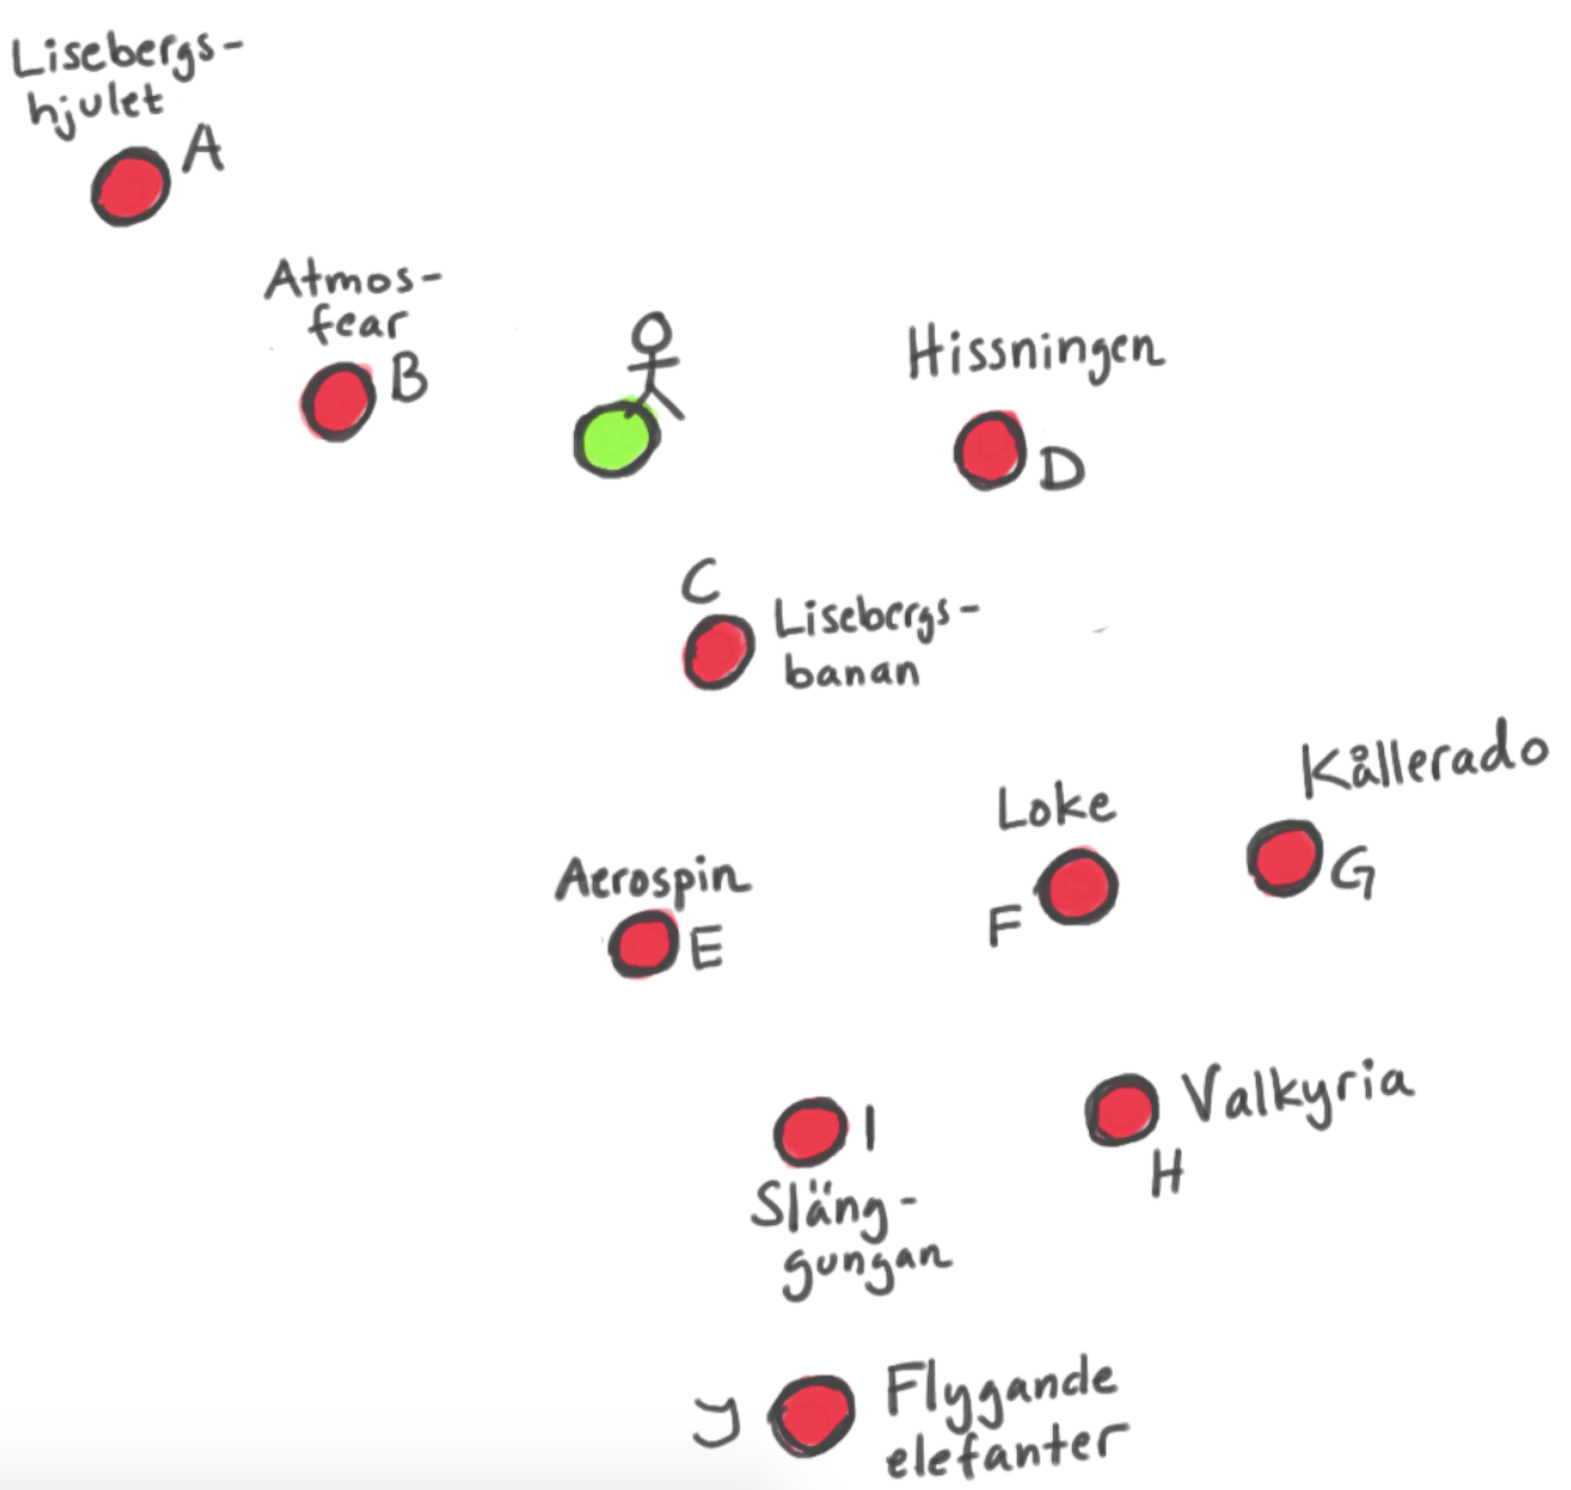 Lisebergs-
hjulet
A
Atmos-
fear
B
Hissningen
D
C
Lisebergs-
banan
Kållerado
G
Loke
F
Aerospin
E
Valkyria
H
I
Släng-
gungan
J
Flygande
elefanter